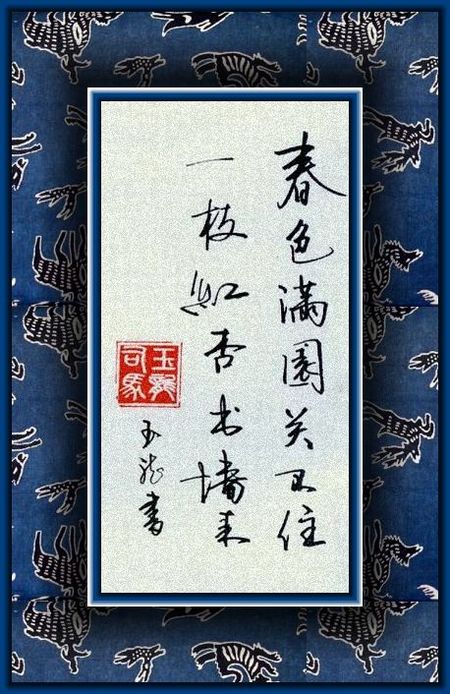 春色满园关不住
一枝红杏出墙来
玉龙书
玉龙司马